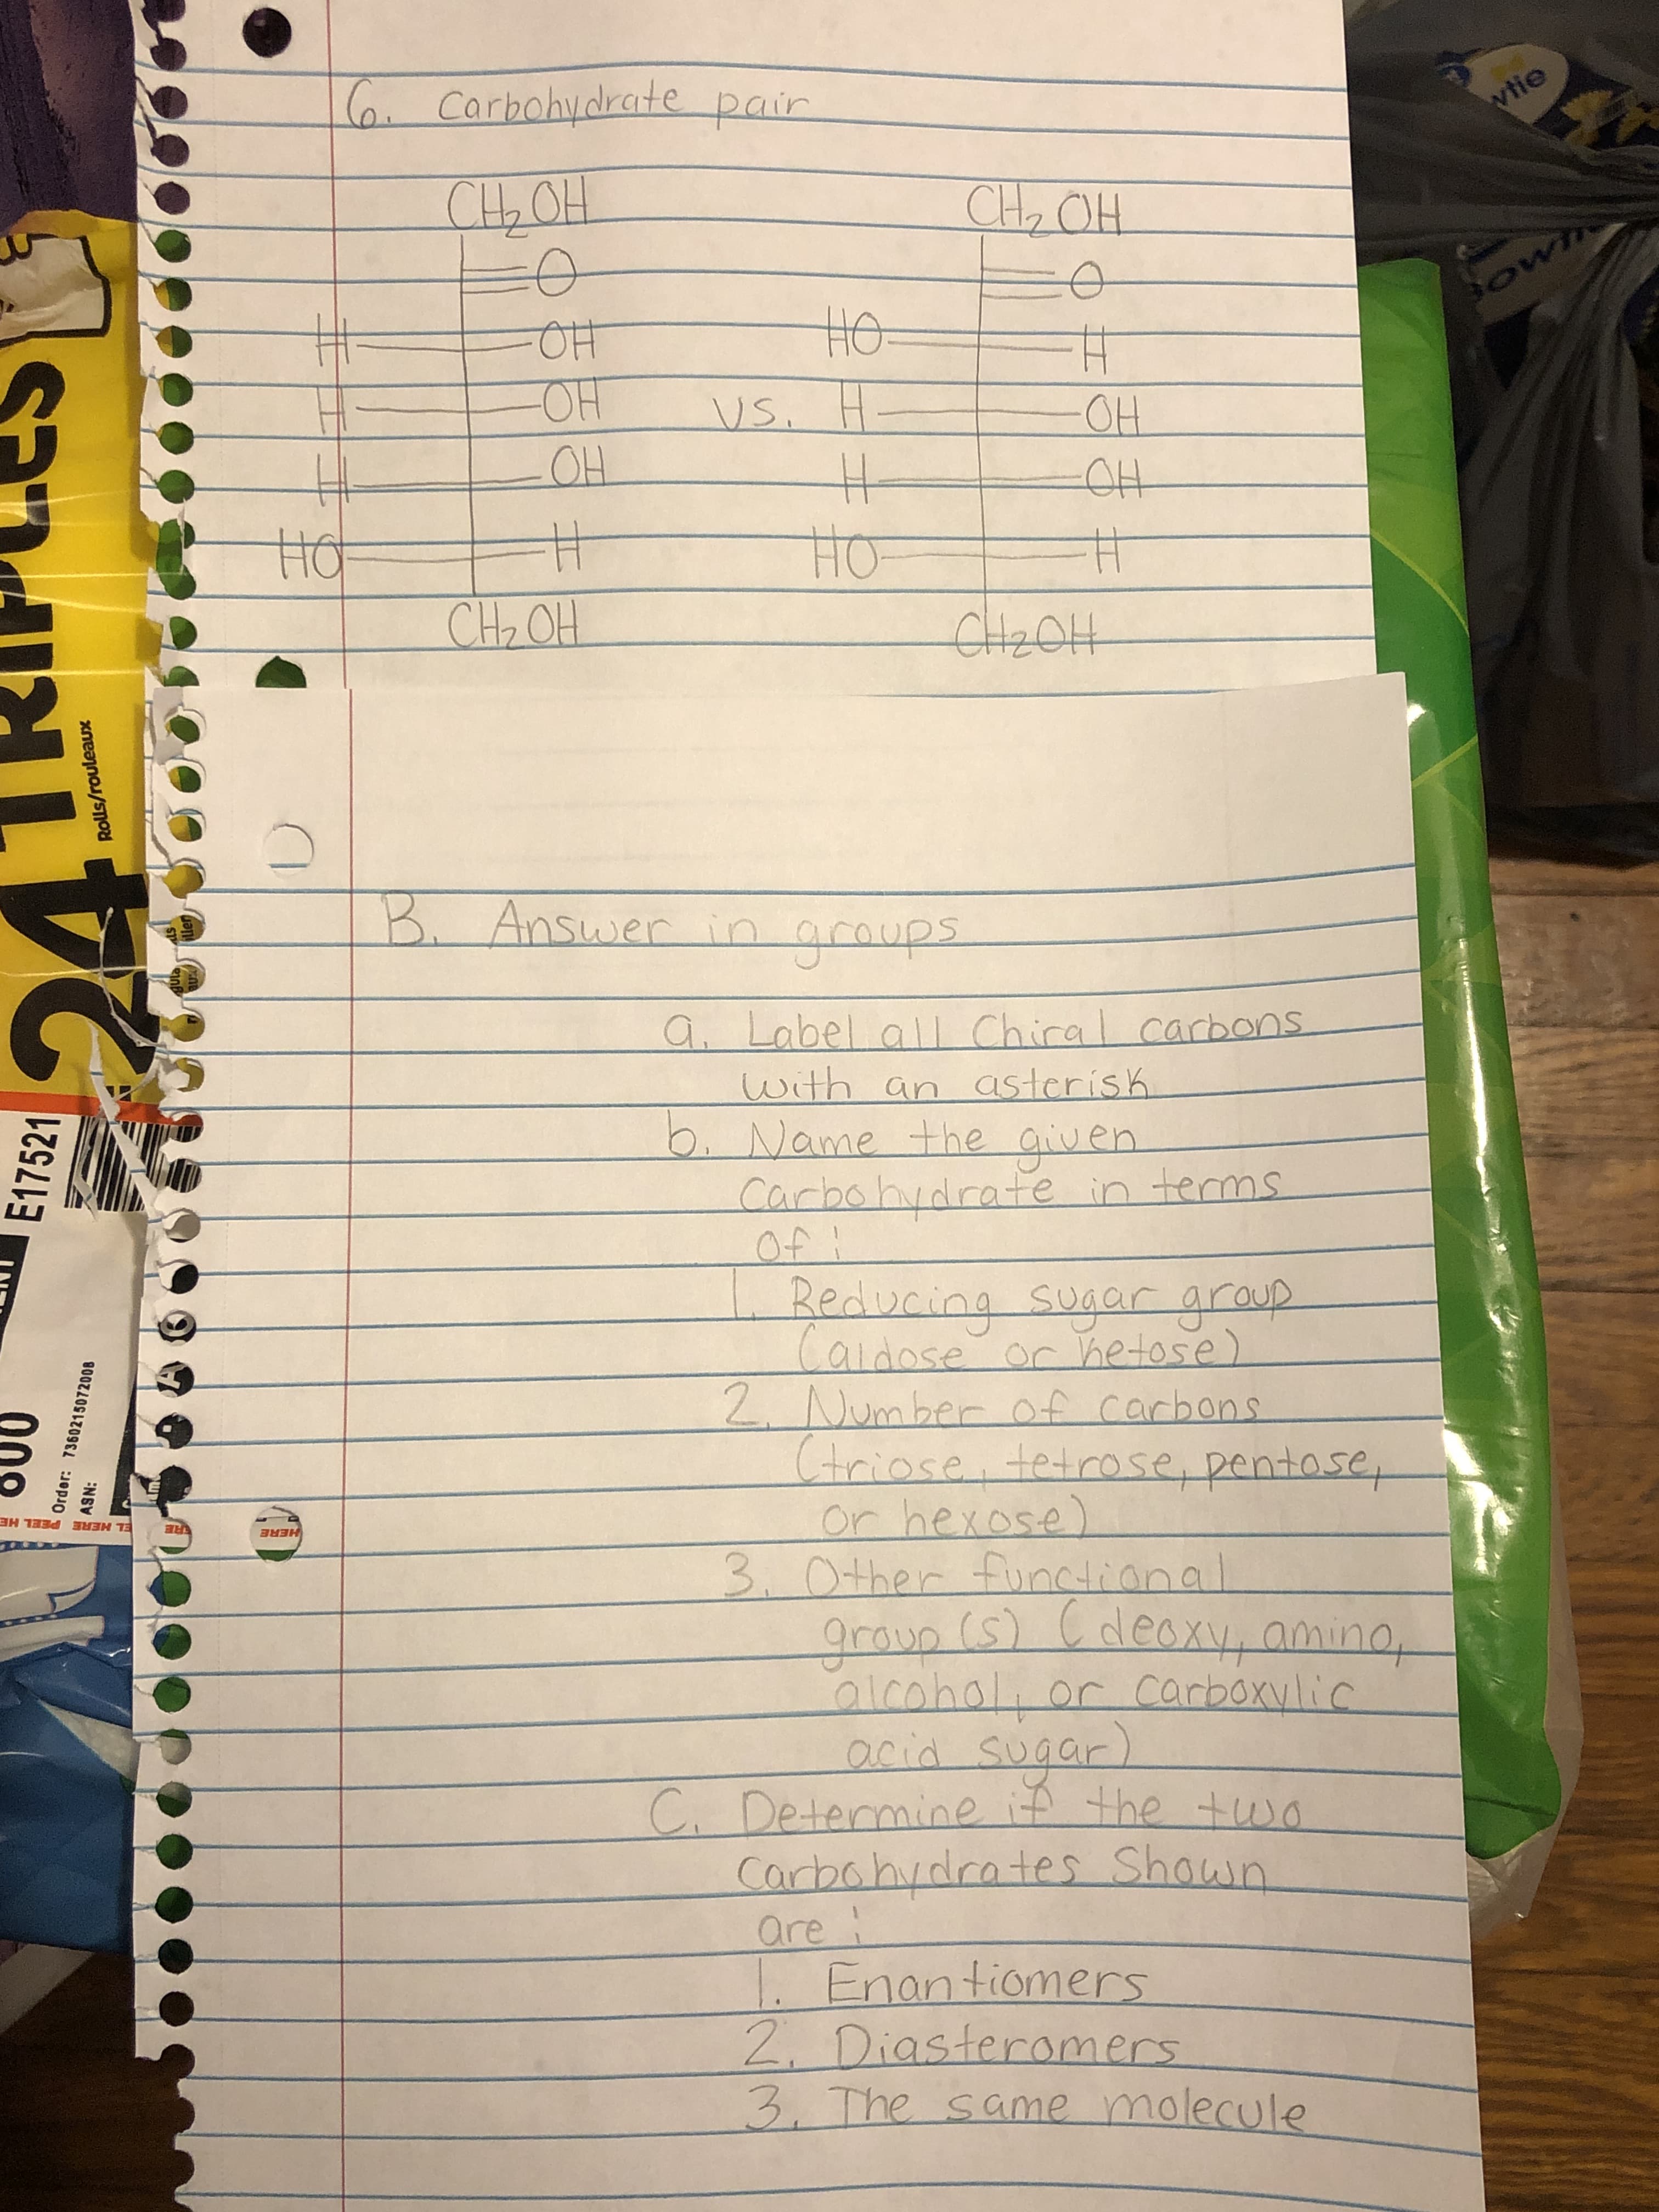 6. Carbohydrate pair
CH₂OH CH₂OH
=O =O
H OH HO H
H OH vs. H OH
H OH H OH
HO H HO H
CH₂OH CH₂OH
B. Answer in groups
a. Label all Chiral carbons
with an asterisk
b. Name the given
Carbohydrate in terms
of:
1. Reducing sugar group
(aldose or ketose)
2. Number of carbons
(triose, tetrose, pentose,
or hexose)
3. Other functional
group(s) (deoxy, amino,
alcohol, or carboxylic
acid sugar)
C. Determine if the two
Carbohydrates Shown
are:
1. Enantiomers
2. Diasteromers
3. The same molecule
24 TRIPLES
Rolls/rouleaux
E17521
800
Order: 7360215072008
ASN:
PEEL HERE
HERE